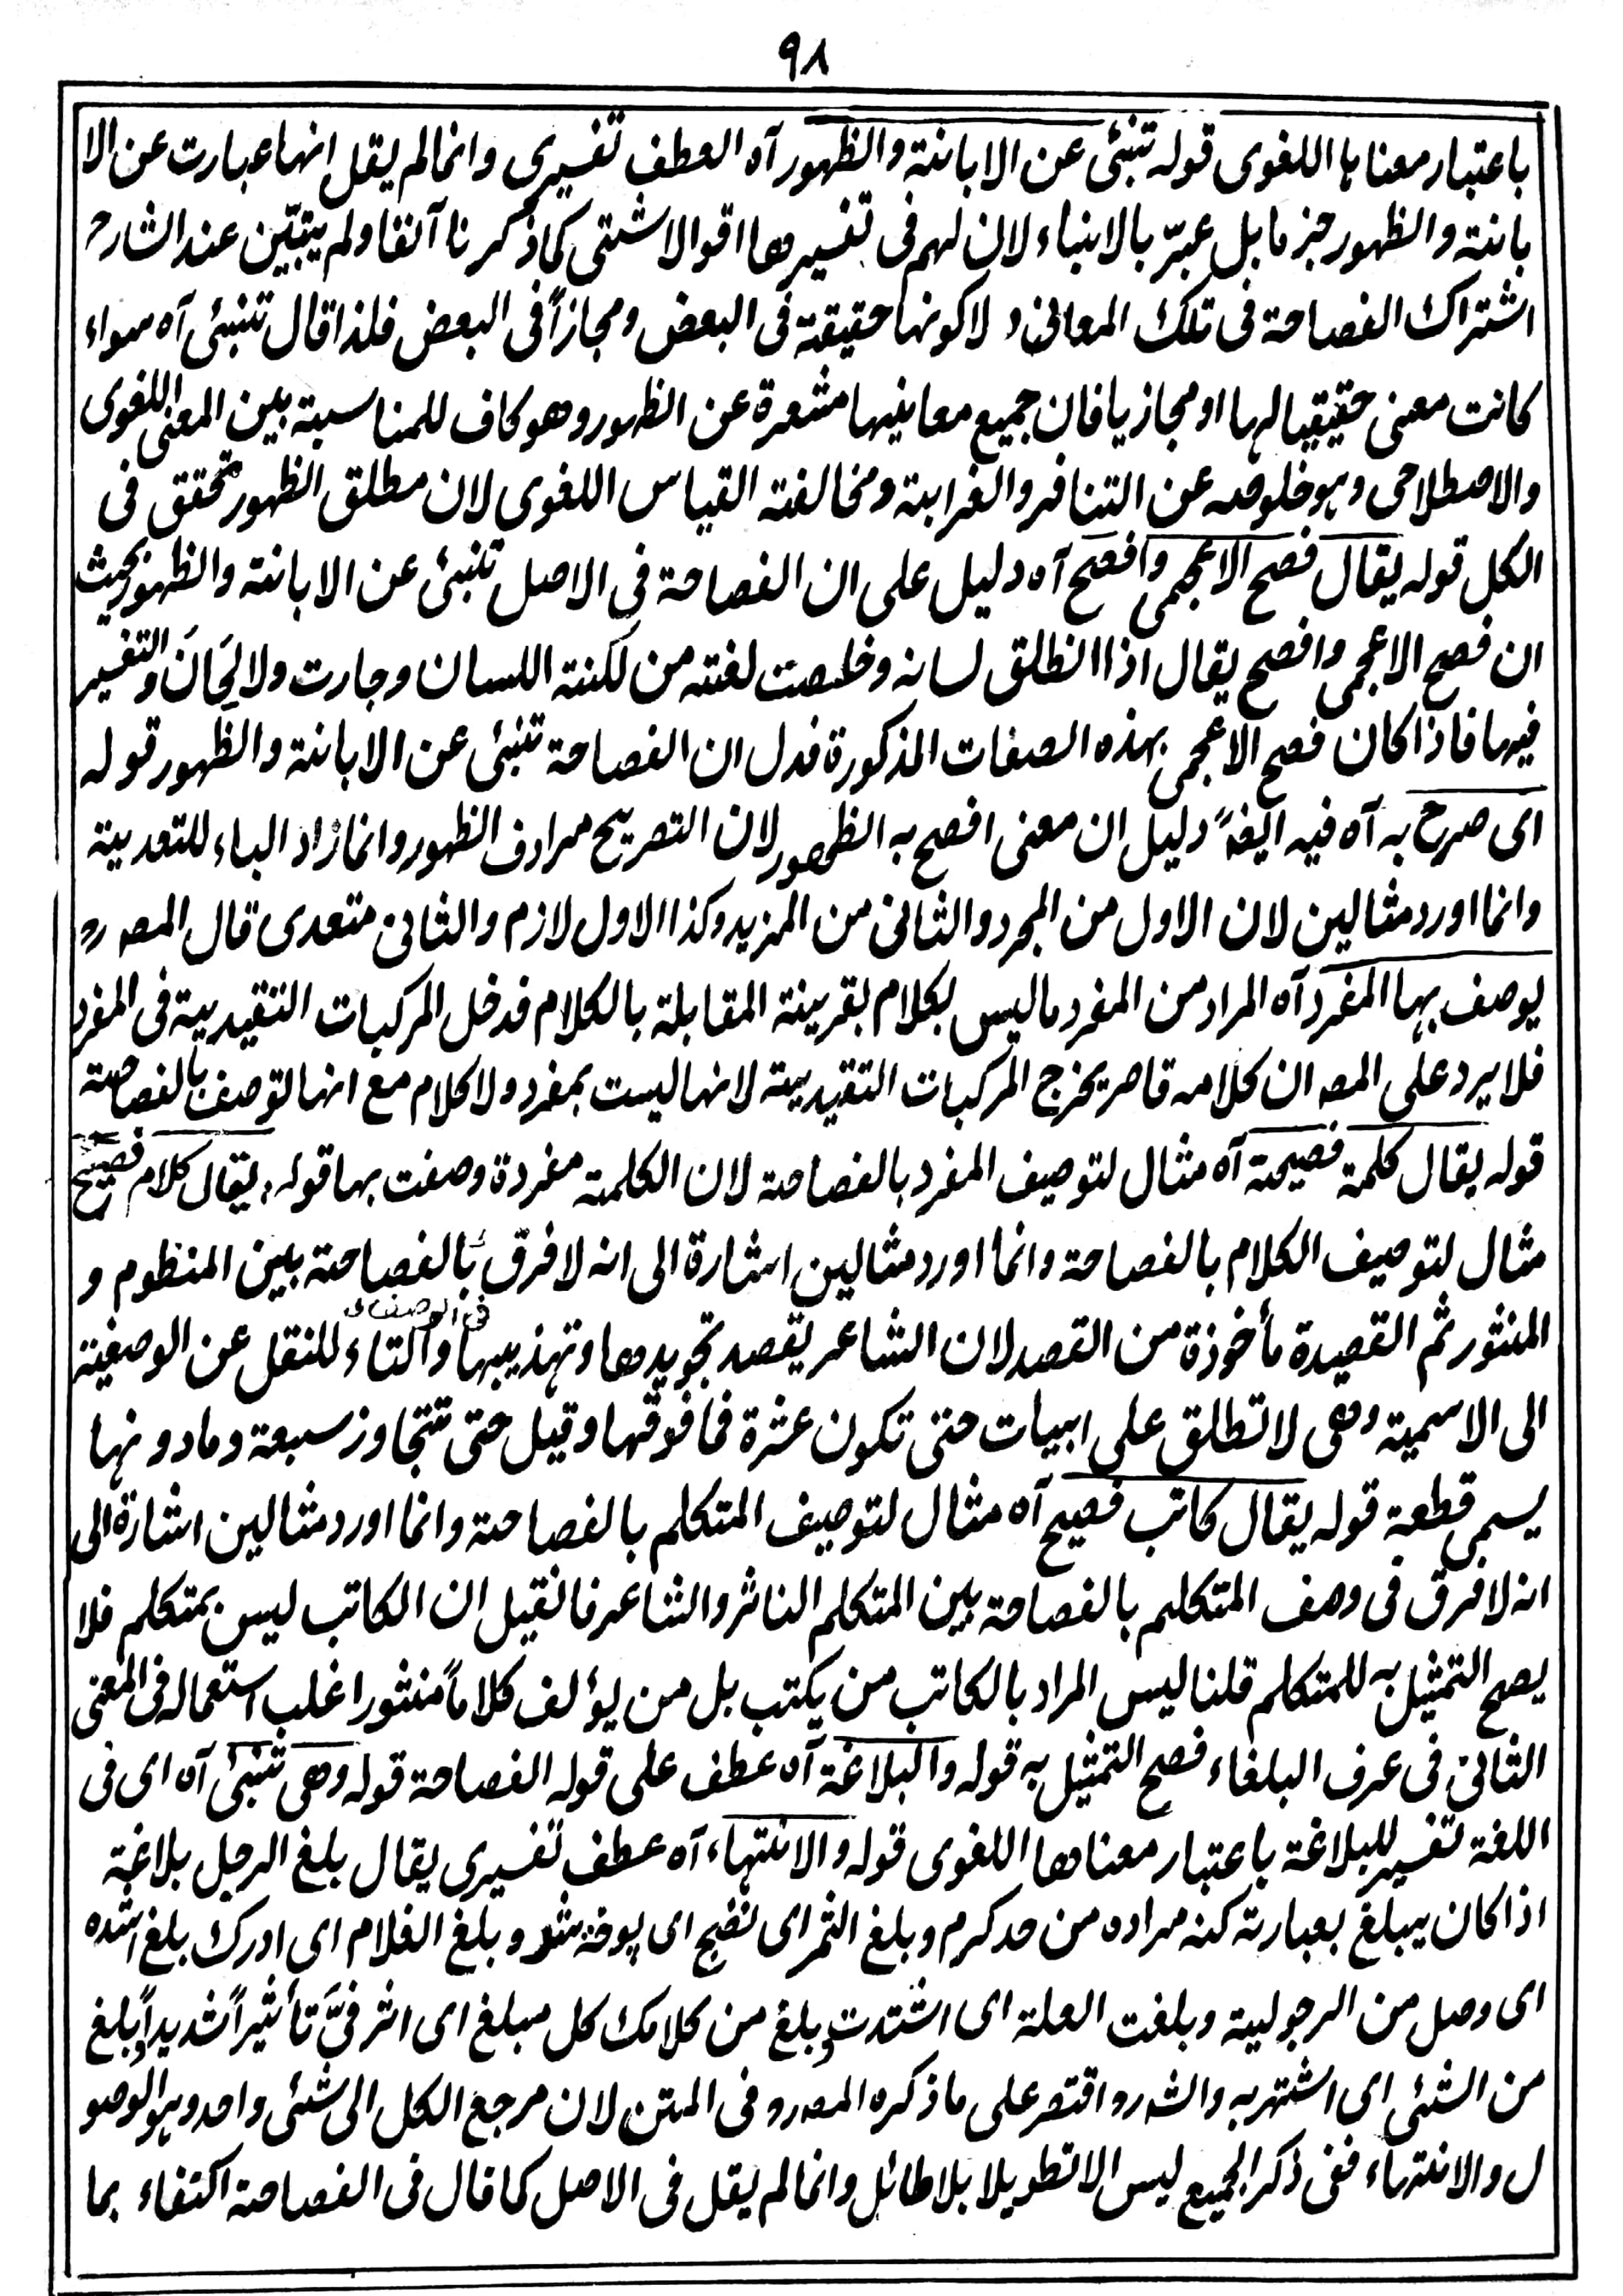 ٩٨
باعتبار معناہا اللغوى قوله تنبئى عن الابانتة والظهور آه العطف تفسيرى وانما لم يقل انها عبارت عن الا
بانتة والظهور جزما بل عبرّ بالانباء لان لهم فى تفسيرها اقوالا شتى كما ذكرنا آنفا ولم يتبيّن عند الشارح
اشتراك الفصاحة فى تلك المعانى ولا كونها حقيقة فى البعض ومجازاً فى البعض فلذا قال تنبئى آه سواء
كانت معنى حقيقيا لها او مجازيا فان جميع معانيها مشعرة عن الظهور وهو كاف للمناسبة بين المعنى اللغوى
والاصطلاحى وہو خلوصه عن التنافر والغرابة ومخالفة القياس اللغوى لان مطلق الظهور متحقق فى
الكل قوله يقال فصح الاعجمى وافصح آه دليل على ان الفصاحة فى الاصل تنبئى عن الابانتة والظهور بحيث
ان فصح الاعجمى وافصح يقال اذا انطلق لسانه وخلصت لغته من لكنتة اللسان وجارت ولا لَحَانَ والتفسير
فيها فاذا كان فصح الاعجمى بهذه الصفات المذكورة فدل ان الفصاحة تنبئى عن الابانتة والظهور قوله
اى صرح به آه فيه ايضاً دليل ان معنى افصح به الظهور لان التصريح مرادف الظهور وانما زاد الباء للتعدية
وانما اورد مثالين لان الاول من المجرد والثانى من المزيد وكذا الاول لازم والثانى متعدى قال المصہ رو
يوصف بہا المفرد آه المراد من المفرد ما ليس بكلام بقرينة المقابلة بالكلام فدخل المركبات التقيدية فى المفرد
فلا يرد على المصہ ان كلامه قاصر يخرج المركبات التقيدية لانها ليست بمفرد ولا كلام مع انها توصف بالفصاحة
قوله يقال كلمة فصيحة آه مثال لتوصيف المفرد بالفصاحة لان الكلمة مفردة وصفت بها قوله يقال كلام فصيح
مثال لتوصيف الكلام بالفصاحة وانما اورد مثالين اشارة الى انه لا فرق بالفصاحة بين المنظوم و
المنثور ثم القصيدة مأخوذة من القصد لان الشاعر يقصد تجويدها وتهذيبها والتاء للنقل عن الوصفية
الى الاسمية وهى لا تطلق على ابيات حتى تكون عشرة فما فوقها وقيل حتى تتجاوز سبعة وما دونها
يسمى قطعة قوله يقال كاتب فصيح آه مثال لتوصيف المتكلم بالفصاحة وانما اورد مثالين اشارة الى
انه لا فرق فى وصف المتكلم بالفصاحة بين المتكلم الناثر والشاعر فانقيل ان الكاتب ليس بمتكلم فلا
يصح التمثيل به للمتكلم قلنا ليس المراد بالكاتب من يكتب بل من يؤلف كلاماً منثورا غلب استعماله فى المعنى
الثانى فى عرف البلغاء فصح التمثيل به قوله والبلاغة آه عطف على قوله الفصاحة قوله وهى تنبئى آه اى فى
اللغة تفسير للبلاغة باعتبار معناها اللغوى قوله والانتهاء آه عطف تفسيرى يقال بلغ الرجل بلاغة
اذا كان يبلغ بعبارته كنه مراده من حد كرم وبلغ الثمر اى نضج اى پوخة شو وبلغ الغلام اى ادرك بلغ اشده
اى وصل من الرجولية وبلغت العلة اى اشتدت وبلغ من كلامك كل مبلغ اى اثر فىّ تأثيراً شديداً وبلغ
من الشئى اى اشتهر به والشہ رو اقتصر على ما ذكره المصہ رو فى المتن لان مرجع الكل الى شئى واحد وہو الوصو
ل والانتهاء ففى ذكر الجميع ليس الا تطويلا بلا طائل وانما لم يقل فى الاصل كما قال فى الفصاحة اكتفاء بما